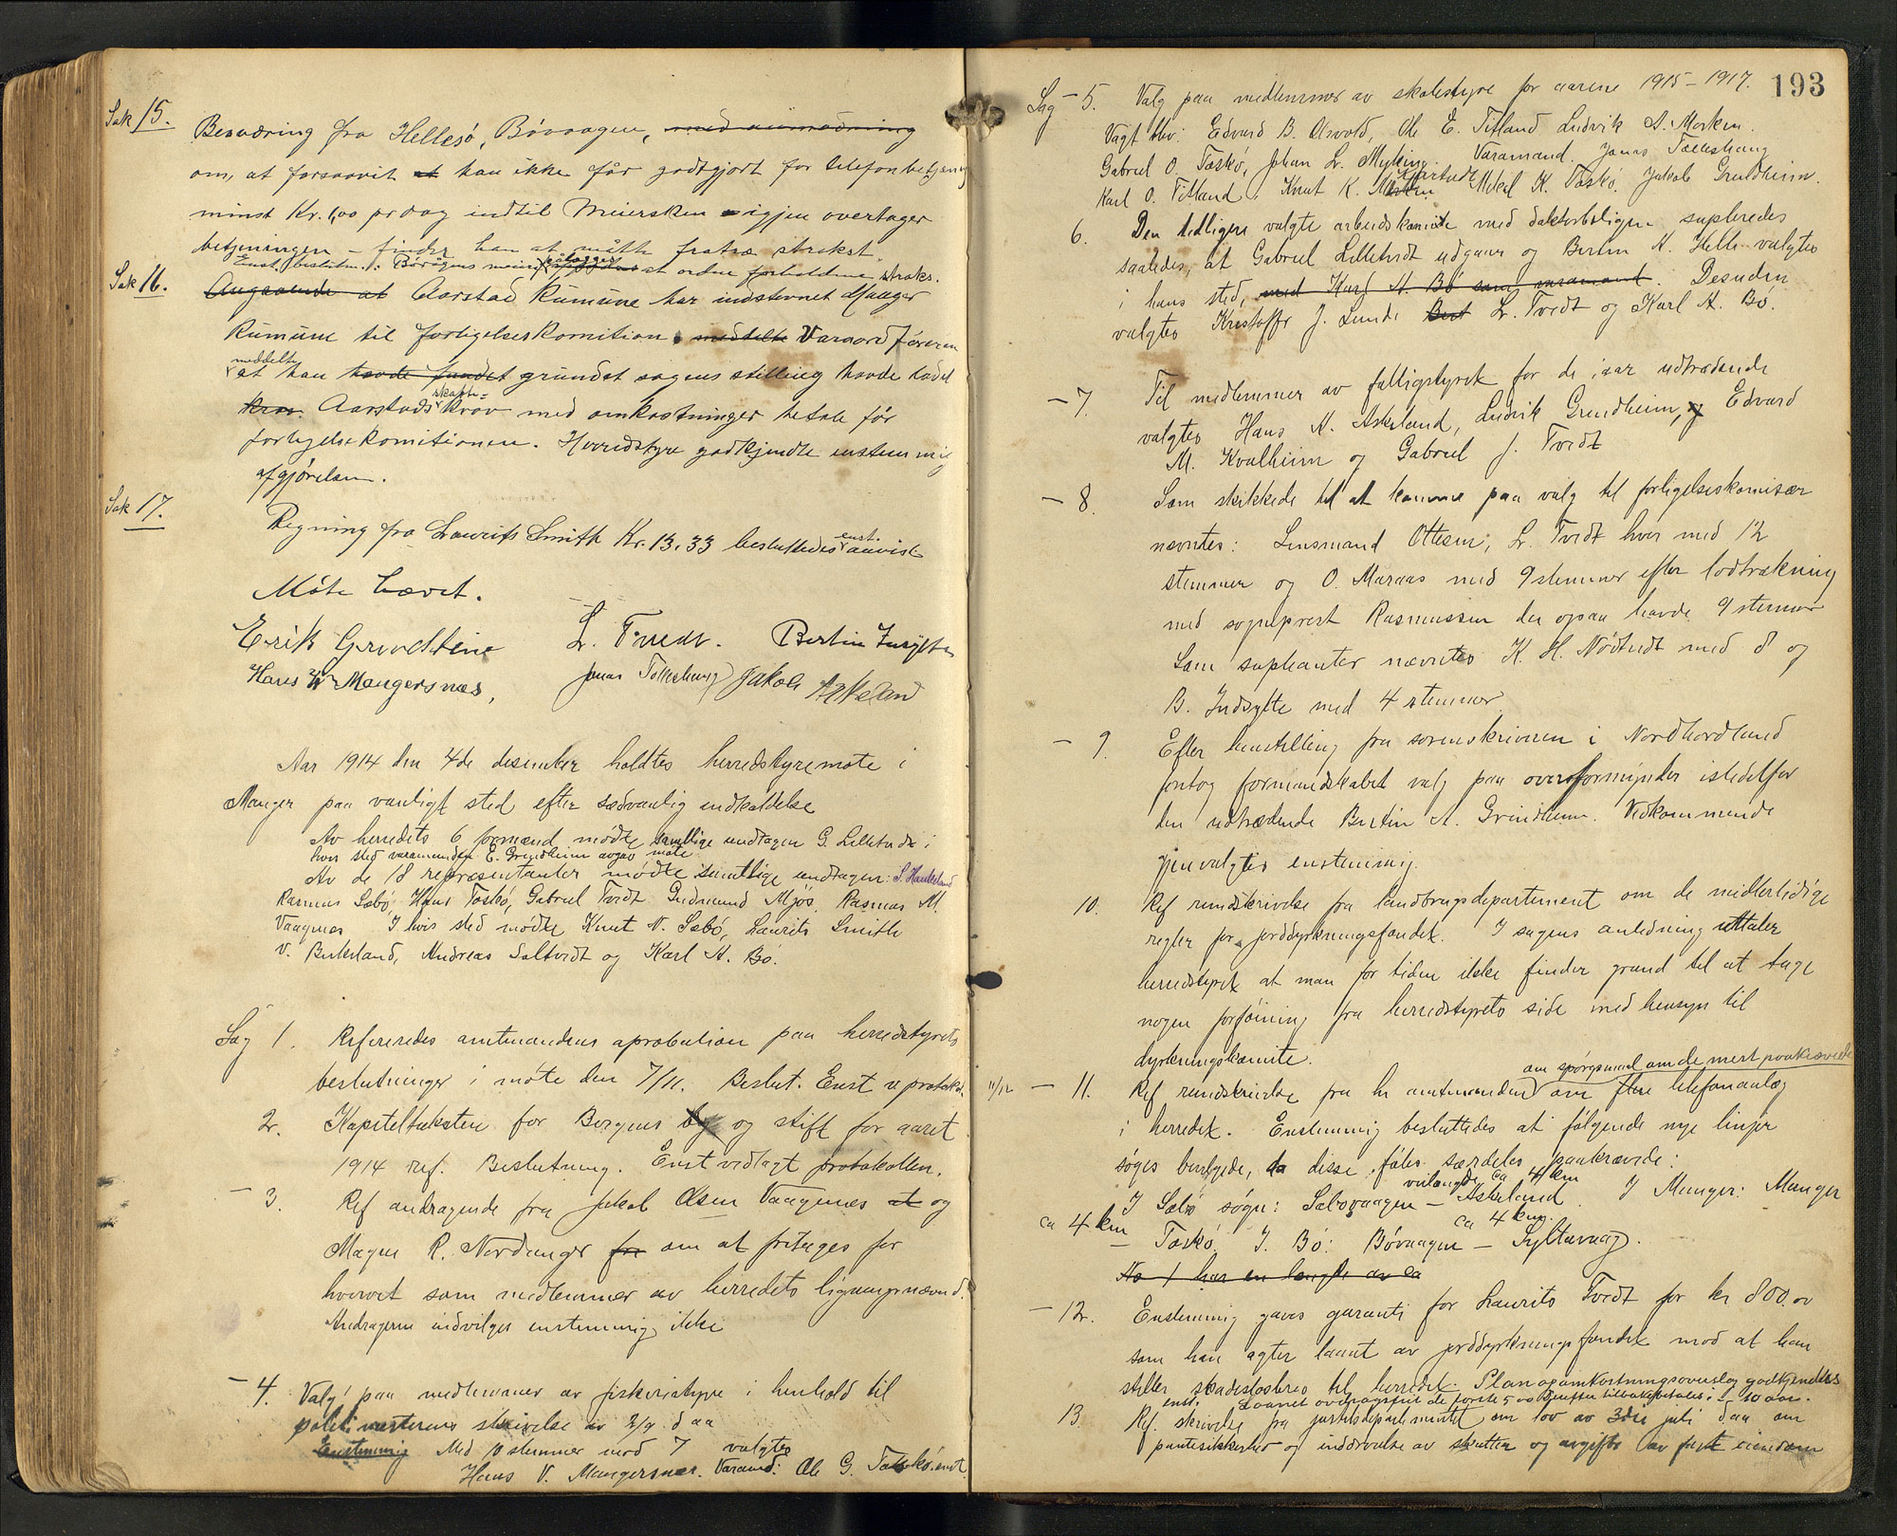 Sak 15. Besværing fra Hellesö, Bövaagen, med anmodning
om, at forsaavit at han ikke får godtgjort for telefonbetjening
minst Kr. 1,00 pr dag indtil Meiersken igjen overtager
betjeningen – finder han at måtte fratræ strakst.
Enst. beslutn.: Bövågens meieri pålægges at ordne forholdene straks.
Sak 16. Angaaende at Aarstad kumune har indstevnet Manger
Kumune til forligelseskomition. meddelte Varaordföreren
meddelte
at han havde fundet grundet sagens stilling havde ladet
krav. Aarstads skatte-krav med omkostninger betale før
forligelseskomitionen. Herredstyre godkjendte enstemmig
afgjörelsen.
Sak 17. Regning fra Laurits Smith Kr. 13,33 besluttedes enst. anvist
Möte hævet.
Erik Grindheim L. Tvedt. Bertin Indsylte
Hans V. Mangersnæs, Jonas Tolleshaug Jakob Askeland
Aar 1914 den 4de desember holdtes herredstyremöte i
Manger paa vanligt sted efter sædvanlig indkaldelse
Av herredets 6 formænd mödte samtlige undtagen G. Lilletvedt i
hvis sted varamanden E. Grindheim avgav möte
Av de 18 repræsentanter mödte samtlige undtagen: S. Haukeland
Rasmus Sæbö, Hans Toskö, Gabriel Tvedt Gudmund Mjös, Rasmus M.
Vaagenes I hvis sted mödte Knut N. Sæbö, Laurits Smith
V. Birkeland, Andreas Saltvedt og Karl A. Bö.
Sag 1. Refereredes amtmandens aprobation paa herredstyrets
beslutninger i möte den 7/11. Beslut. Enst v protokol.
2. Kapiteltaksten for Bergens by og stift for aaret
1914 ref. Beslutning. Enst vedlagt protokollen.
– 3. Ref andragende fra Jakob Olsen Vaagenes at og
Magne R. Nordanger fra om at fritages for
hvervet som medlemmer av herredets ligningsnævnd.
Andragerne indvilges enstemmig ikke
– 4. Valg paa medlemmer av fiskeristyre i henhold til
politimesterens skrivelse av 2/9 d aa
Enstemmig Med 10 stemmer mod 7 valgtes
Hans V. Mangersnes. Varamd: Ole G. Toskö. enst
193
Sag – 5. Valg paa medlemmer av skolestyre for aarene 1915 – 1917.
Vagt blev: Edvard B. Osvold, Ole E. Titland Ludvik A. Morken.
Gabriel O. Toskö, Johan L. Myking. Varamænd. Jonas Tolleshaug
Karl O. Titland, Knut K. Mikal K. Toskö. Jakob Grindheim.
6. Den tidligere valgte arbeidskomite med doktorboligen supleredes
saaledes, at Gabriel Lilletvedt udgaar og Bertin A. Helle valgtes
i hans sted, med Karl A. Bö som varamand. Desuden
valgtes Kristoffer J. Lunde Bert L. Tvedt og Karl A. Bö.
– 7. Til medlemmer av fattigstyret for de iaar udtrædende
valgtes Hans A. Askeland, Ludvik Grindheim, og Edvard
M. Kvalheim og Gabriel J. Tvedt
– 8. Som skikkede til at komme paa valg til forligelseskomisær
nævntes: Lensmand Ottesen, L. Tvedt hver med 12
stemmer og O. Maraas med 9 stemmer efter lodtrækning
med sogneprest Rasmussen der ogsaa havde 9 stemmer
Som supleanter nævntes K. H. Nödtvedt med 8 og
B. Indsylte med 4 stemmer.
– 9. Efter henstilling fra sorenskriveren i Nordhordland
foretog formandskabet valg paa overformynder istedetfor
den udtrædende Bertin A. Grindheim. Vedkommende
gjenvalgtes enstemmig.
10. Ref rundskrivelse fra landbrugsdepartement om de midlertidige
regler for jorddyrkningsfondet. I sagens anledning uttaler
herredstyret at man for tiden ikke finder grund til at tage
nogen forföining fra herredstyrets side med hensyn til
dyrkningskomite.
om spörgsmaal om de mest paakrævede
11/12 – 11. Ref rundskrivelse fra hr amtmanden om flere telefonanlæg
i herredet. Enstemmig besluttedes at fölgende nye linjer
söges bevilgede, da disse föles særdeles paakrævede:
veilængde ca 4 km
I Sæbö sogn: Sæbövaagen – Askeland I Manger: Manger
ca 4 km ca 4 km.
– Toskö. I. Bö: Bövaagen – Syltavaag.
No 1 har en længde av ca
– 12. Enstemmig gaves garanti for Laurits Tvedt for kr 800.00
som han agter laant av jorddyrkningsfondet mod at han
stiller skadeslösbrev til herredet. Plan og omkostningsoverslag godkjendtes
enst. Laanet avdragsfrit de förste 5 aar derefter tilbakebetales i 10 aar.
13. Ref. skrivelse fra justisdepartementet om lov av 3die juli d aa om
pantesikkerhet og inddrivelse av skatter og avgifter av fast eiendom